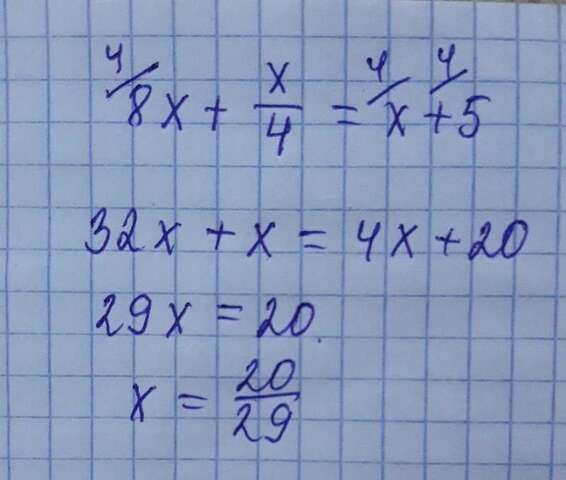 4/8x + x/4 = 4/x + 4/5
32x + x = 4x + 20
29x = 20
x = 20/29